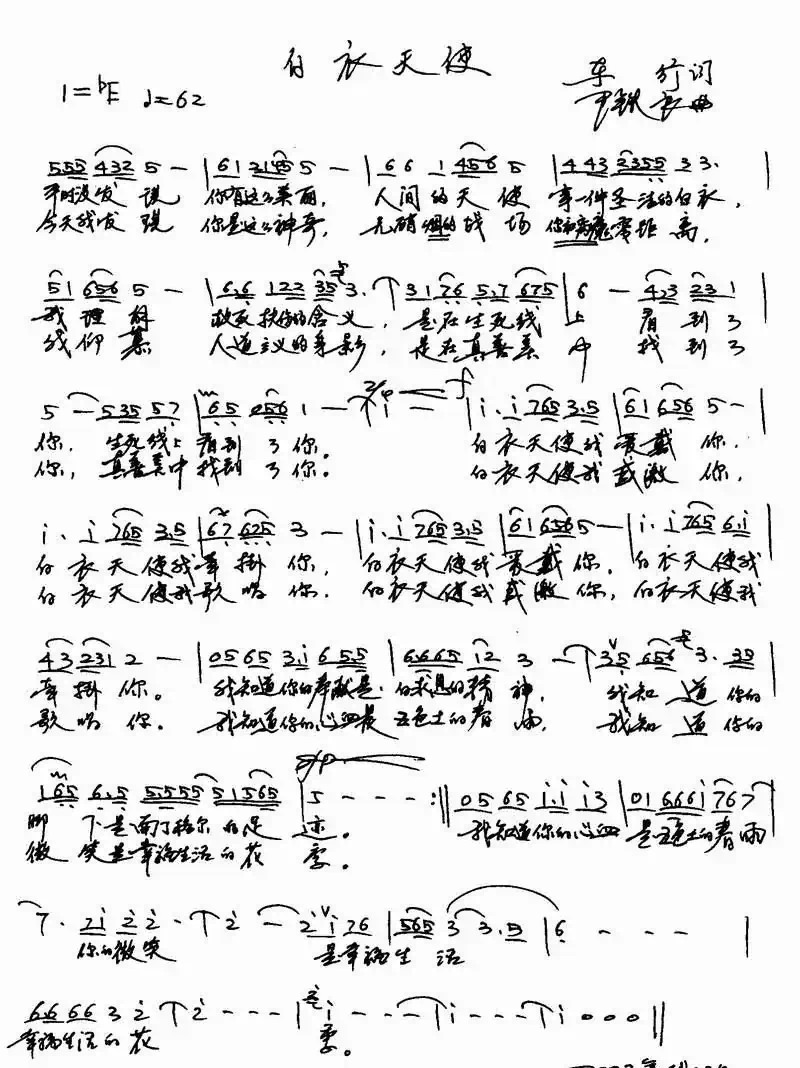 白衣天使
车行词
1=♭E ♩=62 铁 曲
555 432 5 — | 6 1 3 1 5 — | 6 6 1 456 5 | 443 2355 33· |
平时没发现 你有这么美丽, 人间的天使 穿一件圣洁的白衣,
今天我发现 你是这么神奇, 无硝烟的战场 你和病魔零距离,
51 656 5 — | 6·6 122 35 3· | 31 76 5·7 675 | 6 — 4·3 23 1 |
我理解 救死扶伤的含义, 是在生死线上 看到了
我仰慕 人道主义的身影, 是在真善美中 找到了
5 — 535 57 | 65 056 1 — | i — | i· i 765 3·5 | 61 656 5 — |
你, 生死线上看到了你。 白衣天使我爱戴你,
你, 真善美中找到了你。 白衣天使我感激你,
i· i 765 3·5 | 67 625 3 — | i· i 765 3·5 | 61 656 5 — | i· i 765 6·i |
白衣天使我牵挂你, 白衣天使我爱戴你, 白衣天使我
白衣天使我歌唱你, 白衣天使我感激你, 白衣天使我
43 231 2 — | 05 65 3·i 6 5·5 | 6·6 65 i2 3 — | 35 656 3· 35 |
牵挂你。 我知道你的奉献是 白求恩的精神, 我知道你的
歌唱你。 我知道你的心血是 五色土的春雨, 我知道你的
165 6·5 5·555 51565 | 5 - - - :|| 05 65 i·i i3 | 01 666i 767 |
脚下是南丁格尔的足迹。 我知道你的心血 是五色土的春雨
微笑是幸福生活的花季。
7· 7i 2 2· | 2 — 2 i 76 | 565 3 3·5 | 6 - - - |
你的微笑 是幸福生活
6·6 66 3 2 | 2 - - - | i - - - | i - - - | i 0 0 0 ||
幸福生活的花 季。